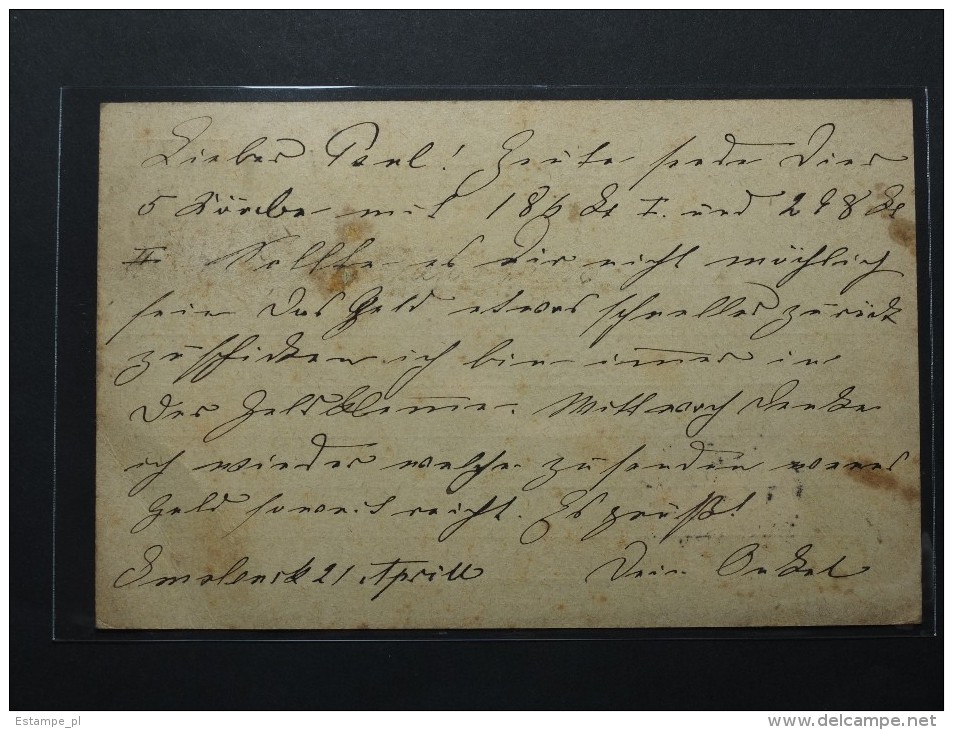 Lieber Paul! Heute sende Dier
5 Körbe mit 186 St I. und 298 St
II Sollte es Dir nicht möchlich
sein Das Geld etwas schneller zurük
zu schicken ich bin immer in
Der Geldklemme. Mittwoch denke
ich wieder welche zu senden wens
Geld soweit reicht. Es grüßt
Smolensk 21 Aprill Dein Onkel
Estampe_pl
delcampe.net